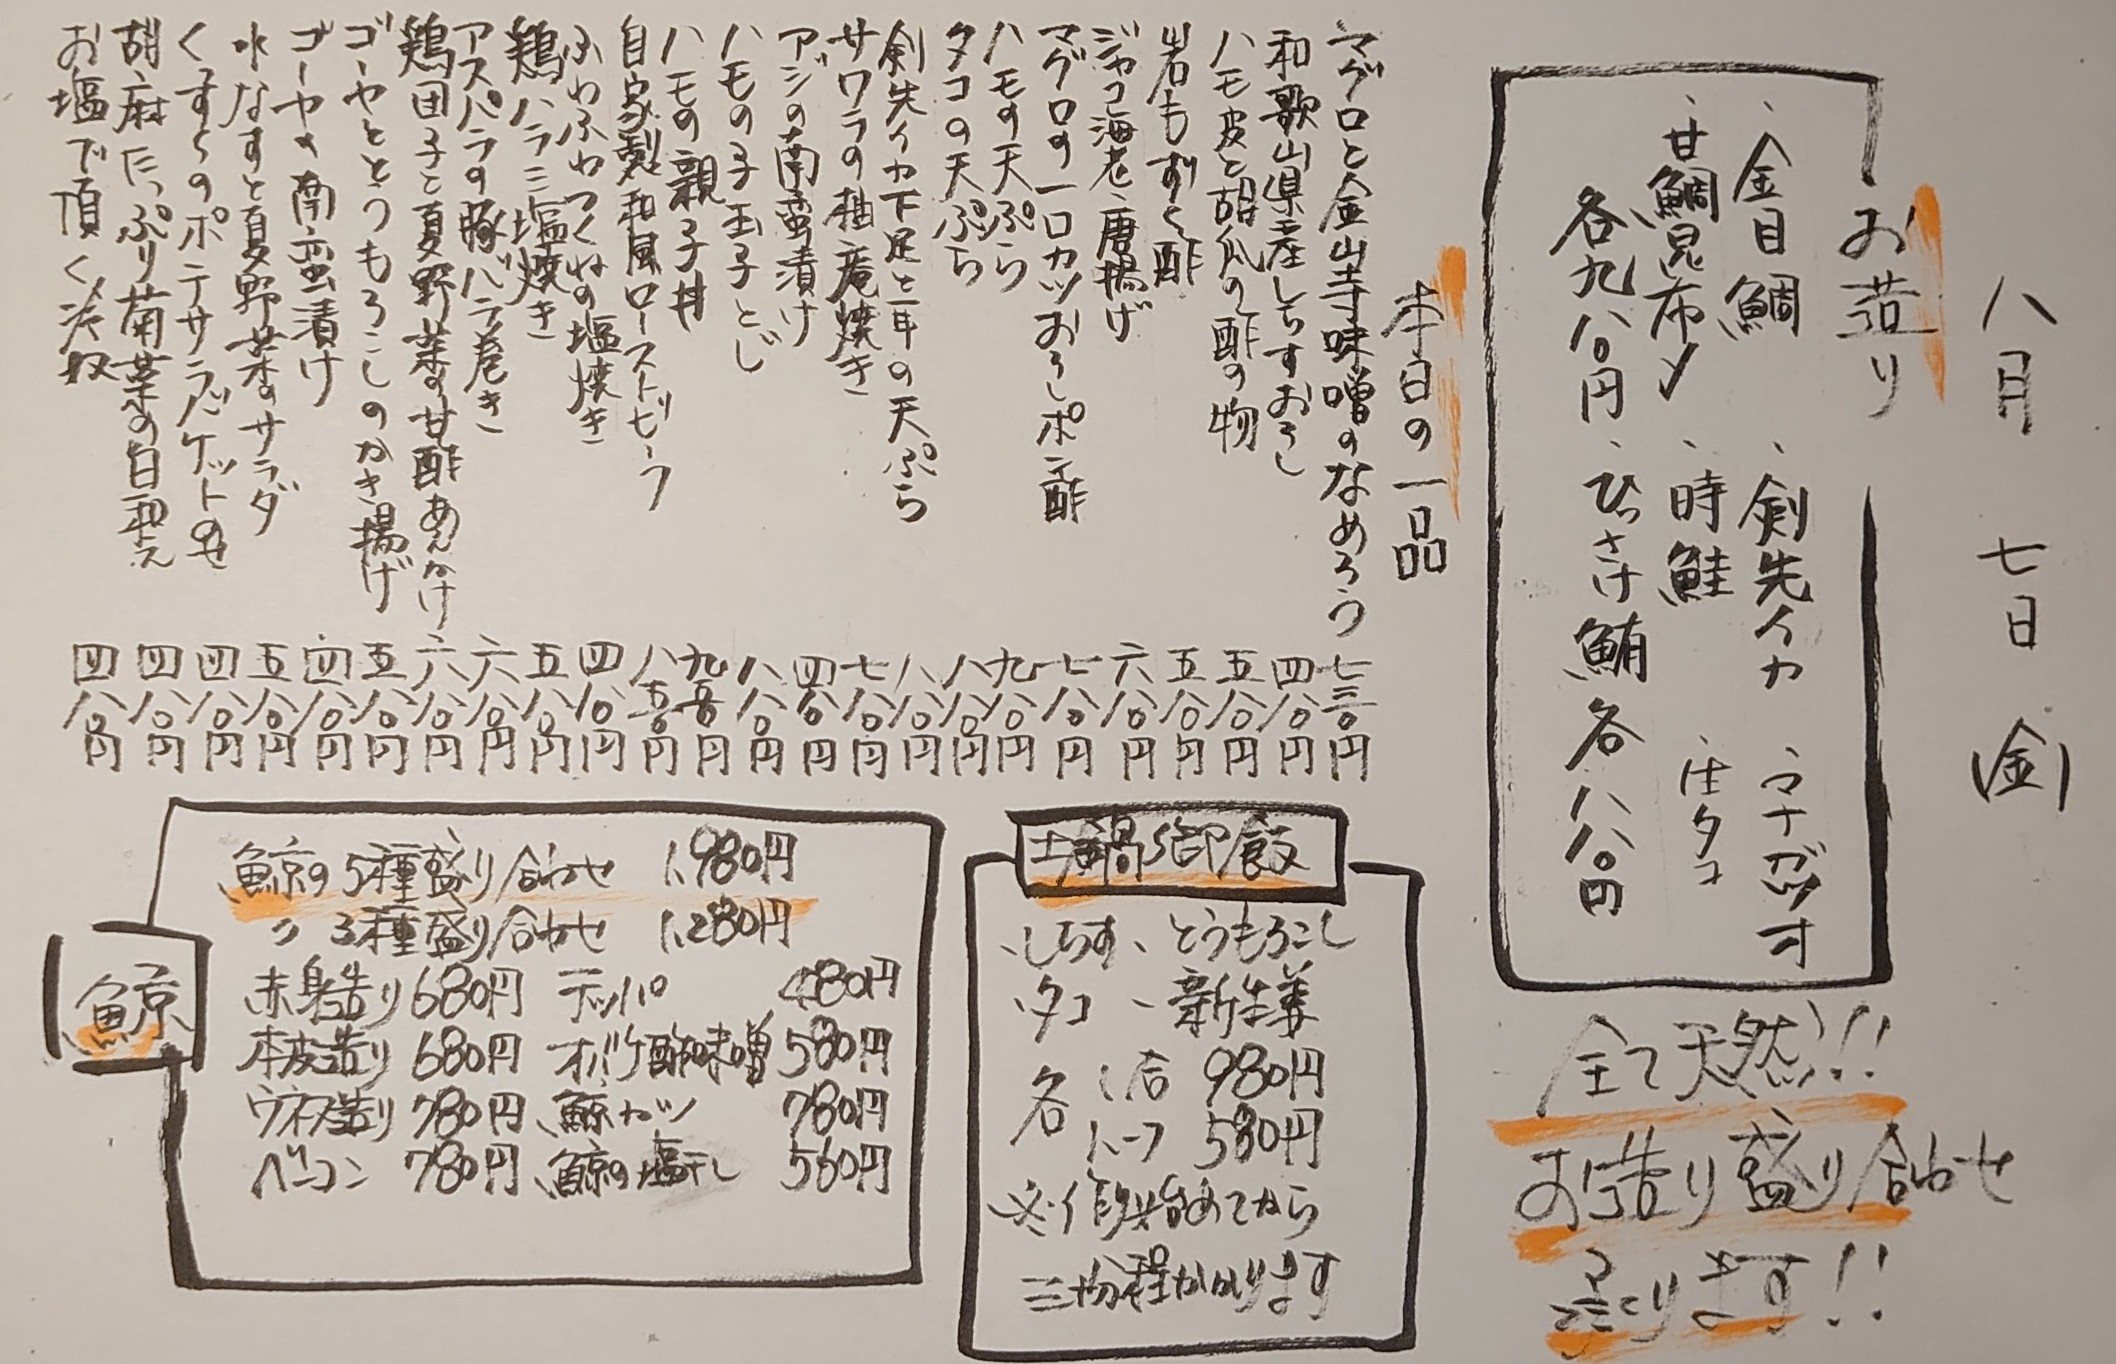 八月 七日 (金)
お造り
、金目鯛 、剣先イカ 、マナガツオ
、甘鯛昆布〆 、時鮭 、活タコ
各九八〇円 、ひっさげ鮪 各八八〇円
全て天然!!
お造り盛り合わせ
承ります!!
本日の一品
マグロと金山寺味噌のなめろう 七三〇円
和歌山県産しらすおろし 四八〇円
ハモ皮と胡瓜の酢の物 五八〇円
岩もずく酢 五八〇円
ジャコ海老唐揚げ 六八〇円
マグロの一口カツおろしポン酢 七八〇円
ハモの天ぷら 九八〇円
タコの天ぷら 八八〇円
剣先イカ下足と耳の天ぷら 八八〇円
サワラの柚庵焼き 七八〇円
アジの南蛮漬け 四八〇円
ハモの子玉子とじ 八八〇円
ハモの親子丼 九五〇円
自家製和風ローストビーフ 八五〇円
ふわふわつくねの塩焼き 四八〇円
鶏ハラミ塩焼き 五八〇円
アスパラの豚バラ巻き 六八〇円
鶏団子と夏野菜の甘酢あんかけ 六八〇円
ゴーヤととうもろこしのかき揚げ 五八〇円
ゴーヤの南蛮漬け 四八〇円
水なすと夏野菜のサラダ 五八〇円
くずし のポテサラバケットのせ 四八〇円
胡麻たっぷり菊菜の白和え 四八〇円
お塩で頂く冷奴 四八〇円
土鍋御飯
、しらす 、とうもろこし
、タコ 、新生姜
各 1合 980円
ハーフ 580円
※ 炊き始めてから
三十分程かかります
鯨
鯨の5種盛り合わせ 1,980円
〃 3種盛り合わせ 1,280円
赤身造り 680円 テッパ 480円
本皮造り 680円 オバケ酢味噌 580円
ウネス造り 780円 鯨カツ 780円
ベーコン 780円 鯨の塩干し 560円